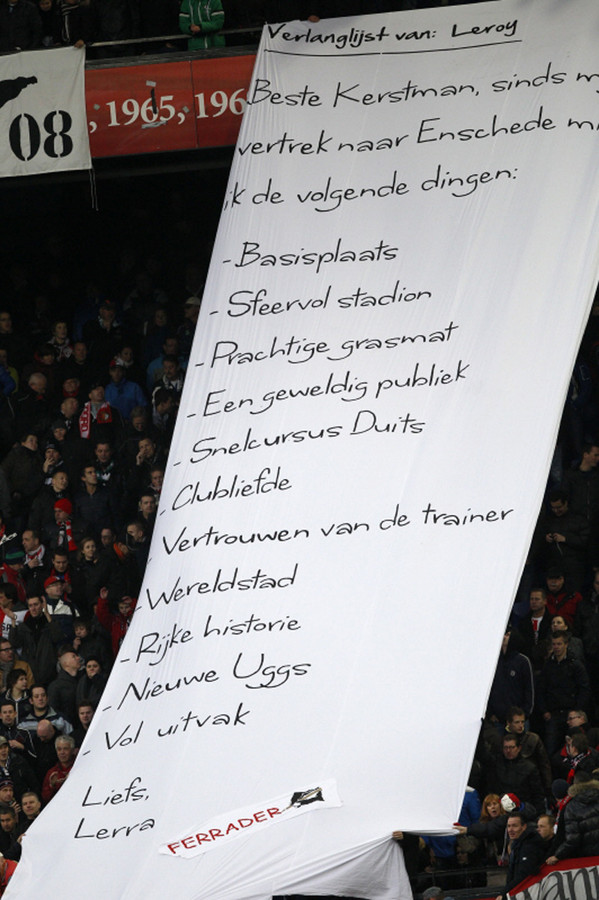 Verlanglijst van: Leroy
08
, 1965, 196
Beste Kerstman, sinds m
vertrek naar Enschede mi
ik de volgende dingen:
- Basisplaats
- Sfeervol stadion
- Prachtige grasmat
- Een geweldig publiek
- Snelcursus Duits
- Clubliefde
- Vertrouwen van de trainer
- Wereldstad
- Rijke historie
- Nieuwe Uggs
- Vol uitvak
Liefs,
Lerra
FERRADER